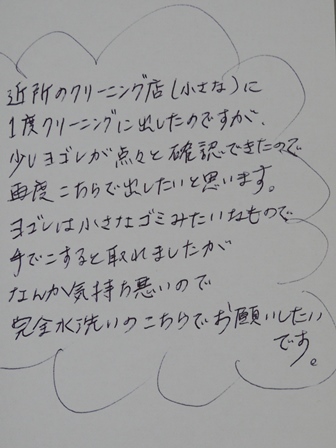 近所のクリーニング店(小さな)に
1度クリーニングに出したのですが、
少しヨゴレが点々と確認できたので
再度こちらで出したいと思います。
ヨゴレは小さなゴミみたいなもので
手でこすると取れましたが
なんか気持ち悪いので
完全水洗いのこちらでお願いしたい
です。